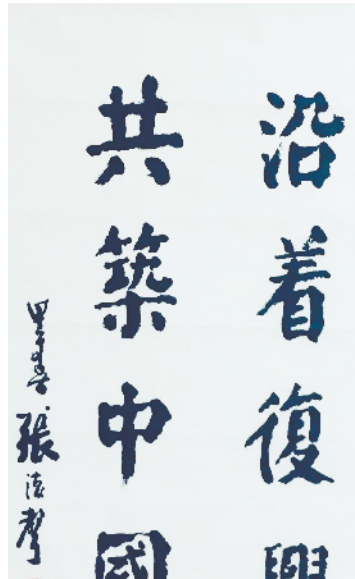 沿着復興
共築中國
甲午春張聲